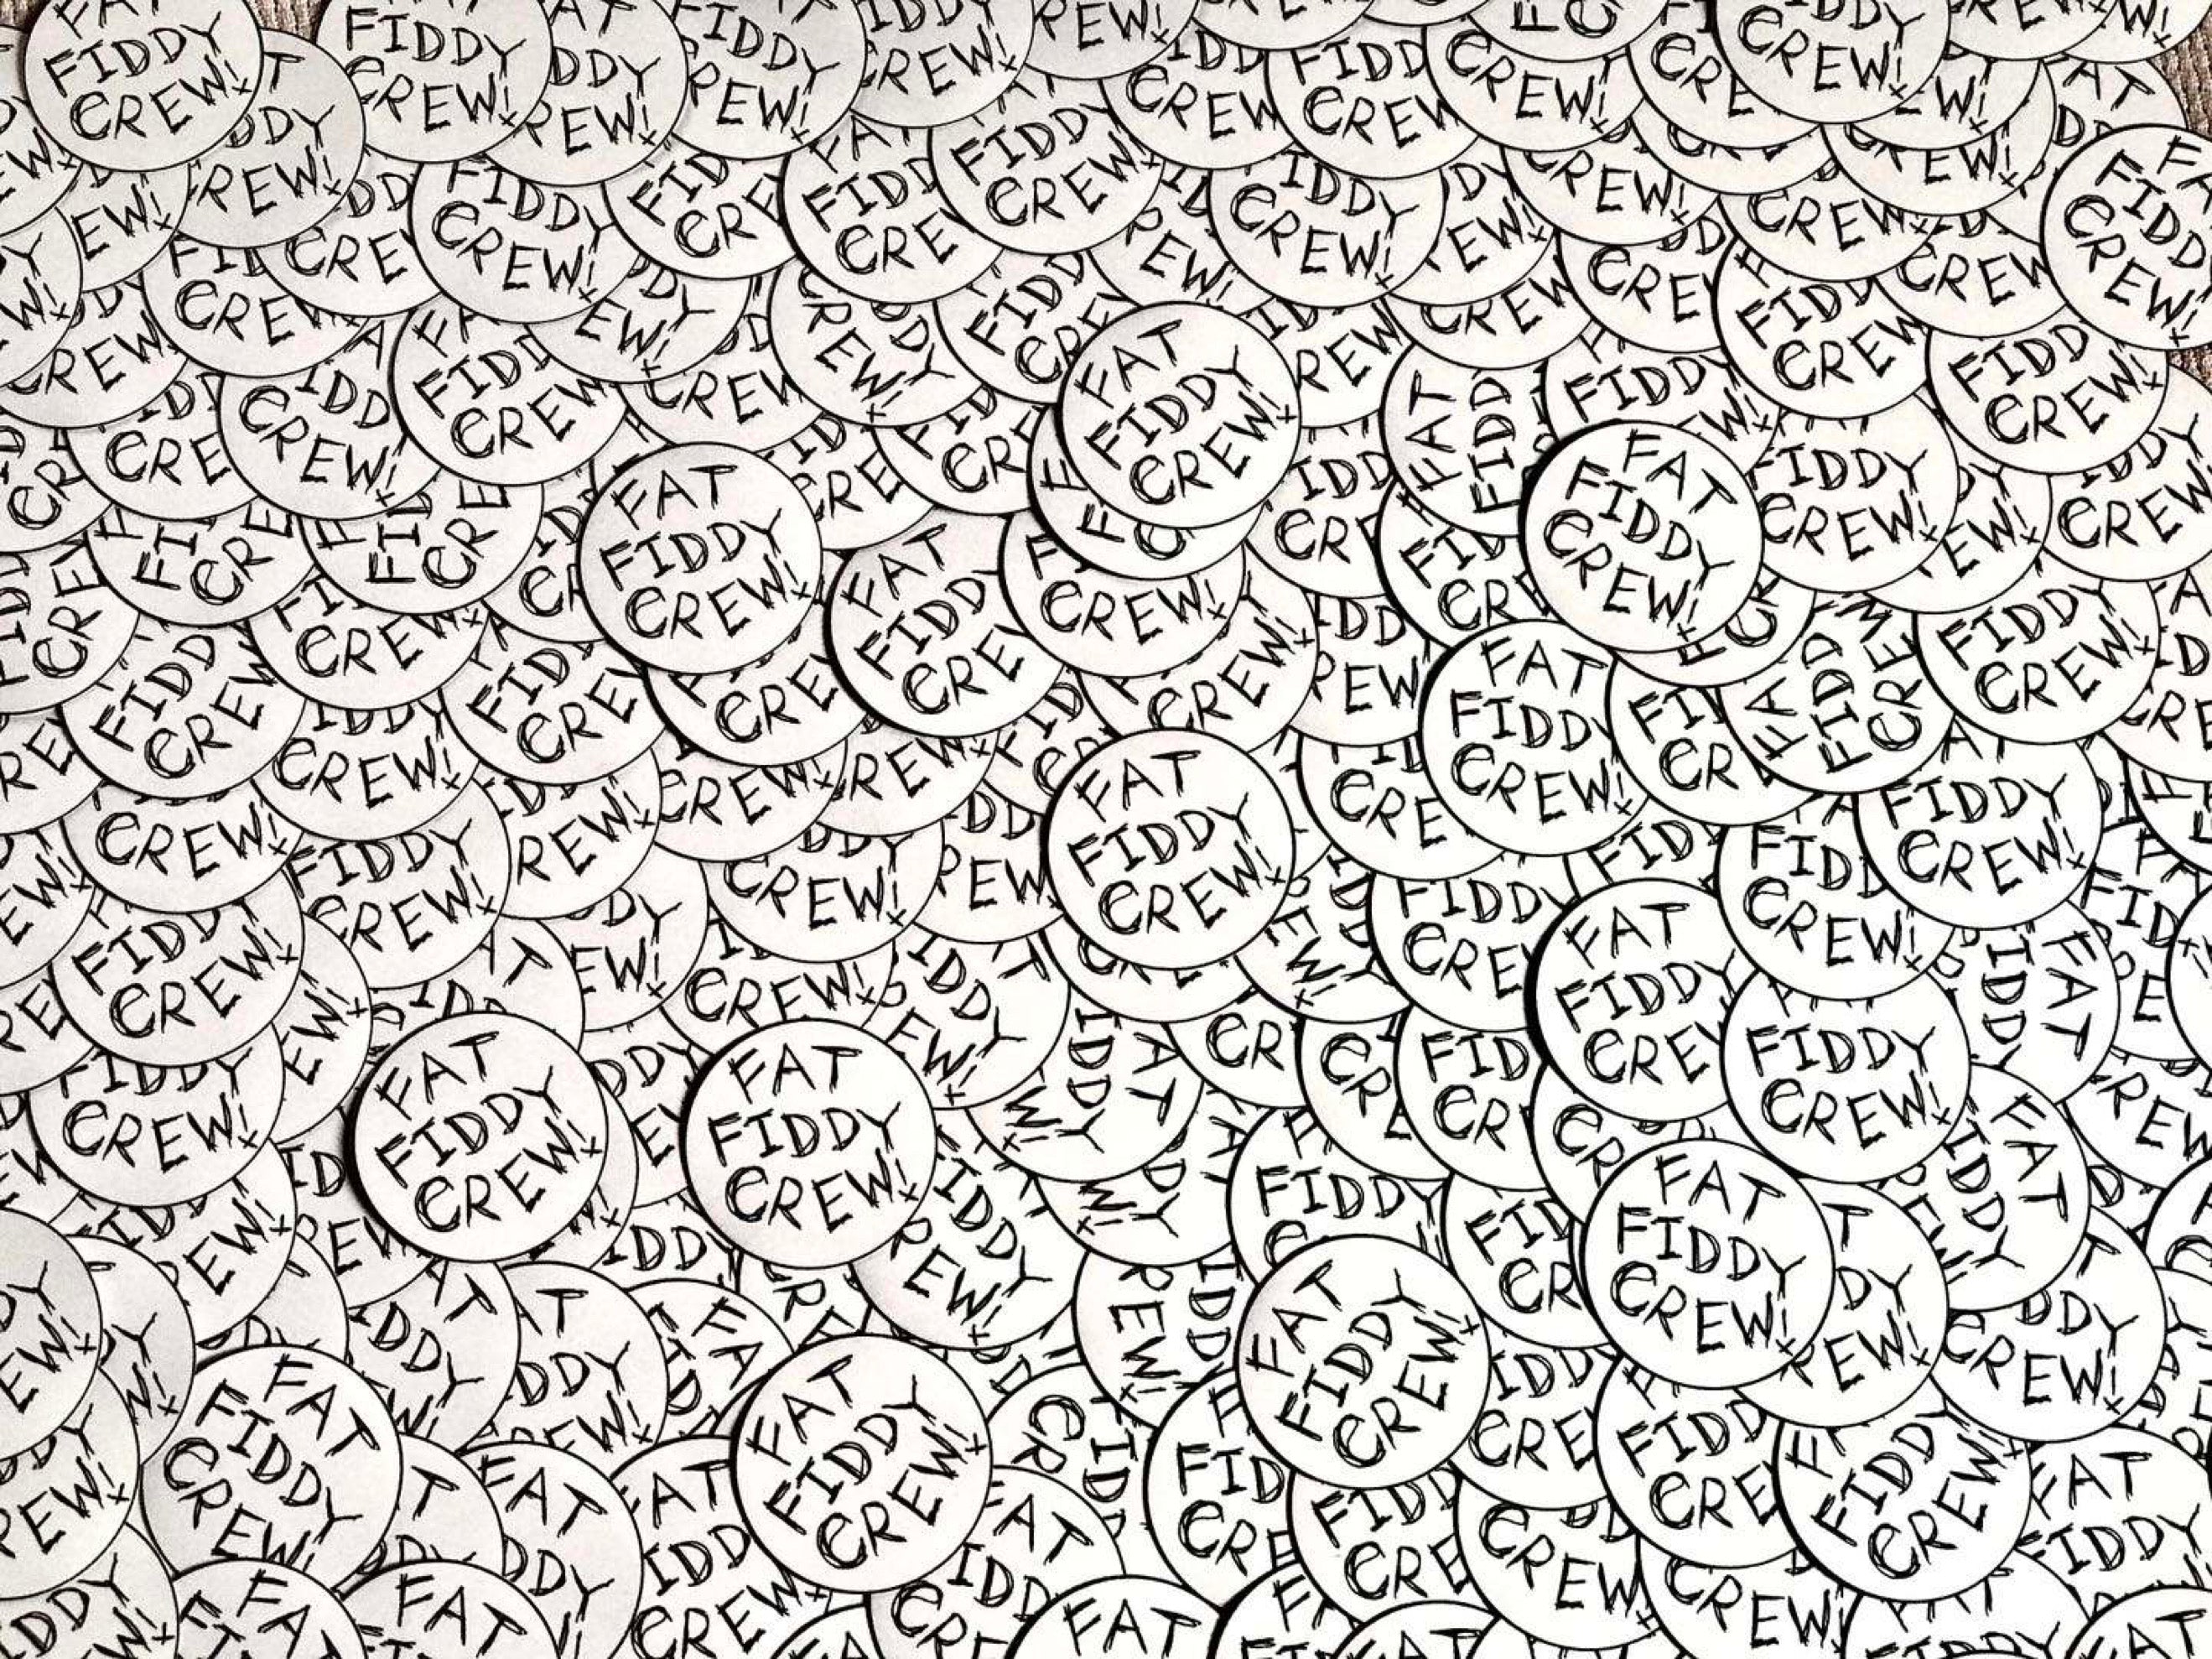 FAT
FIDDY
CREW!